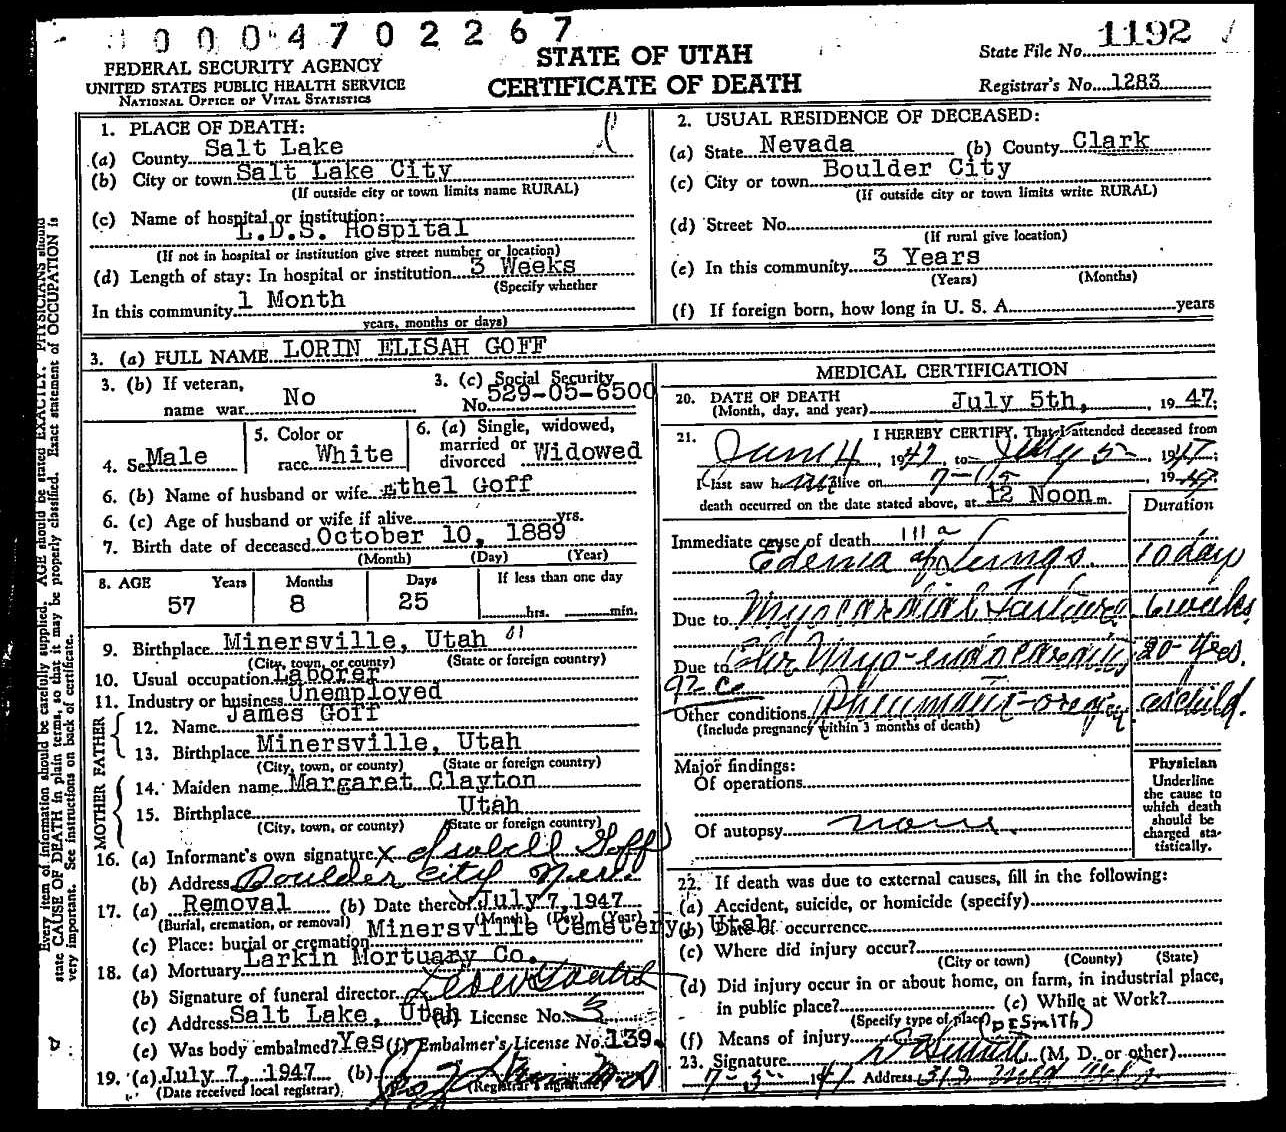 0004702267
STATE OF UTAH
CERTIFICATE OF DEATH
State File No. 1192
Registrar's No. 1283
FEDERAL SECURITY AGENCY
UNITED STATES PUBLIC HEALTH SERVICE
NATIONAL OFFICE OF VITAL STATISTICS
Every item of information should be carefully supplied. AGE should be stated EXACTLY. PHYSICIANS should
state CAUSE OF DEATH in plain terms, so that it may be properly classified. Exact statement of OCCUPATION is
very important. See instructions on back of certificate.
1. PLACE OF DEATH:
(a) County Salt Lake
(b) City or town Salt Lake City
(If outside city or town limits name RURAL)
(c) Name of hospital or institution:
L.D.S. Hospital
(If not in hospital or institution give street number or location)
(d) Length of stay: In hospital or institution 3 Weeks
(Specify whether
In this community 1 Month
years, months or days)
2. USUAL RESIDENCE OF DECEASED:
(a) State Nevada (b) County Clark
(c) City or town Boulder City
(If outside city or town limits write RURAL)
(d) Street No.
(If rural give location)
(e) In this community 3 Years
(Years) (Months)
(f) If foreign born, how long in U. S. A. years
3. (a) FULL NAME LORIN ELISAH GOFF
3. (b) If veteran,
name war No
3. (c) Social Security
No. 529-05-6500
4. Sex Male
5. Color or
race White
6. (a) Single, widowed,
married or
divorced Widowed
6. (b) Name of husband or wife Ethel Goff
6. (c) Age of husband or wife if alive yrs.
7. Birth date of deceased October 10, 1889
(Month) (Day) (Year)
8. AGE Years Months Days If less than one day
57 8 25 hrs. min.
9. Birthplace Minersville, Utah
(City, town, or county) (State or foreign country)
10. Usual occupation Laborer
11. Industry or business Unemployed
FATHER
12. Name James Goff
13. Birthplace Minersville, Utah
(City, town, or county) (State or foreign country)
MOTHER
14. Maiden name Margaret Clayton
15. Birthplace Utah
(City, town, or county) (State or foreign country)
16. (a) Informant's own signature x Isabell Goff
(b) Address Boulder City Nev.
17. (a) Removal (b) Date thereof July 7, 1947
(Burial, cremation, or removal) (Month) (Day) (Year)
(c) Place: burial or cremation Minersville Cemetery, Utah
18. (a) Mortuary Larkin Mortuary Co.
(b) Signature of funeral director
(c) Address Salt Lake, Utah (d) License No. 3
(e) Was body embalmed? Yes (f) Embalmer's License No. 139
19. (a) July 7, 1947 (b)
(Date received local registrar) (Registrar's signature)
MEDICAL CERTIFICATION
20. DATE OF DEATH
(Month, day, and year) July 5th, 1947;
21. I HEREBY CERTIFY, That I attended deceased from
June 4, 1947 to July 5 1947
I last saw him alive on 7-1947
death occurred on the date stated above, at 12 Noon m.
Duration
Immediate cause of death 111a
Edema of Lungs. 10 day
Due to Myocardial Failure 6 weeks
Due to Chr Myo-endocarditis 20 yrs.
92c
Other conditions Rheumatic as child.
(Include pregnancy within 3 months of death)
Major findings:
Of operations
Of autopsy none
Physician
Underline
the cause to
which death
should be
charged sta-
tistically.
22. If death was due to external causes, fill in the following:
(a) Accident, suicide, or homicide (specify)
(b) Date of occurrence
(c) Where did injury occur?
(City or town) (County) (State)
(d) Did injury occur in or about home, on farm, in industrial place,
in public place? (e) While at Work?
(Specify type of place)
(f) Means of injury (DESMITH)
23. Signature (M. D. or other)
Address 312